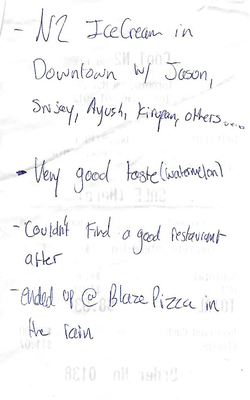 - N2 IceCream in
Downtown w/ Jason,
Ayush, others....
- Very good taste (watermelon)
- Couldn't find a good restaurant
after
- ended up @ Blaze Pizza in
the rain